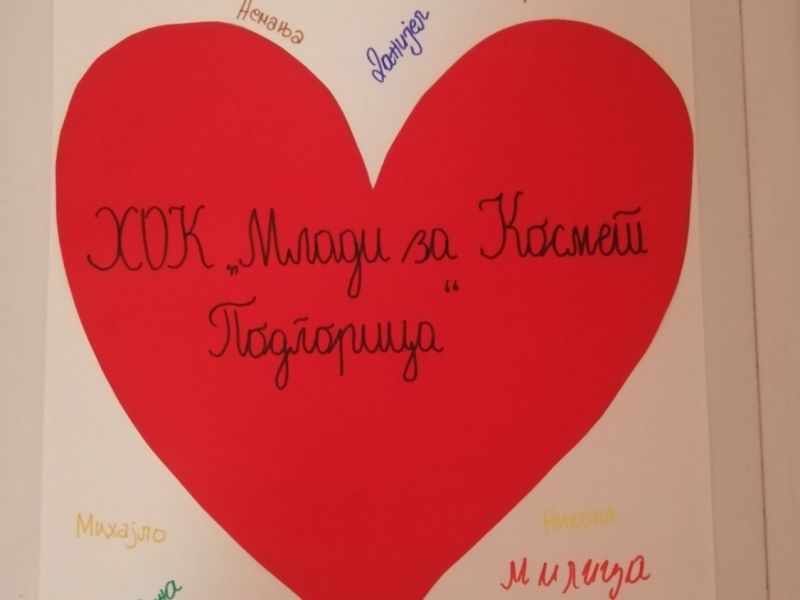 Немања
Данијел
ХОК „Млади за Космет
Подгорица“
Михајло
Никола
Милица